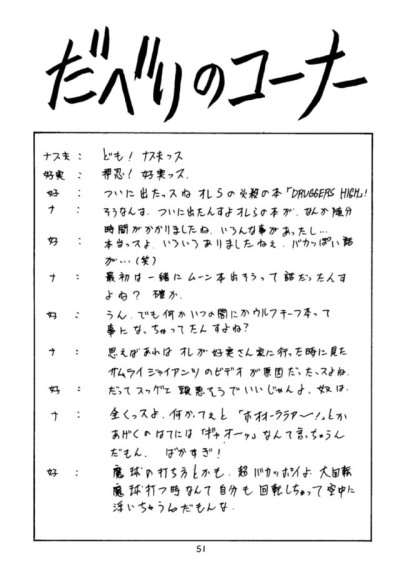 だべりのコーナー
ナスキ： ども！ナスキっス
好実： 押忍！好実っス.
好： ついに出たっスね オレらの必殺の本「DRUGGERS HIGH」!
ナ： そうなんす. ついに出たんすよオレらの本が. なんか随分
時間がかかりましたね. いろんな事があったし…
好： 本当っスよ. いろいろありましたねぇ. バカっぽい話
が…(笑)
ナ： 最初は一緒にムーン本出そうって話だったんす
よね？ 確か.
好： うん. でも何かいつの間にかウルフチーフ本って
事になっちゃってたんすよね？
ナ： 思えばあれは オレが好実さん家に行った時に見た
サムライジャイアンツのビデオが原因だったっスよね.
好： だってスッゲェ頭悪そうでいいじゃんよ. 奴は.
ナ： 全くっスよ. 何かってぇと「ホオオーララァ〜!」とか
あげくのはてには「ギャオーッ」なんて言っちゃうん
だもん. ばかすぎ！
好： 魔球の打ち方とかも. 超バカッポイよ. 大回転
魔球打つ時なんて自分も回転しちゃって空中に
浮いちゃうんだもんな.
51